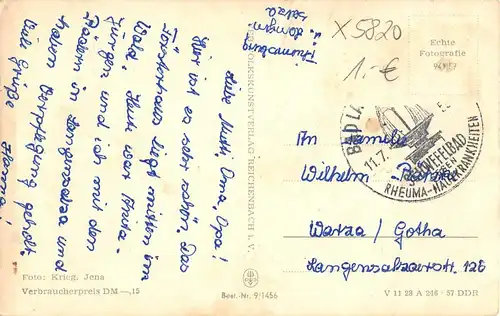 Thamsbrück
b. Langen-
salza
Liebe Mutti, Oma, Opa!
Hier ist es sehr schön. Das
Försterhaus liegt mitten im
Wald. Heute war Anita
Jürgen und ich mit den
Rädern in Langensalza und
haben Verpflegung geholt.
Viele Grüße
Hanna!
VOLKSKUNSTVERLAG REICHENBACH I. V.
X 5820
1.- €
Echte
Fotografie
BAD LA
11.7.
SCHWEFELBAD
GEGEN
RHEUMA-HAUTKRANKHEITEN
An Familie
Wilhelm
Warza / Gotha
Langensalzaerstr. 126
Foto: Krieg, Jena
Verbraucherpreis DM —,15
Best.-Nr. 9/1456
V 11 28 A 246 - 57 DDR